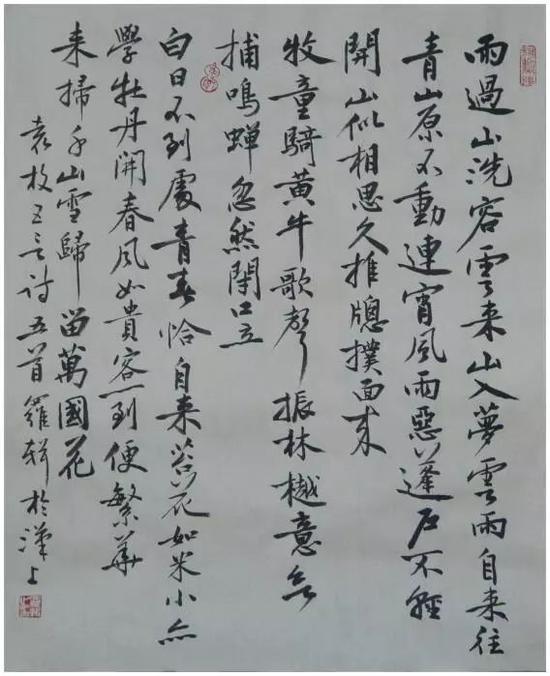 雨過山洗容雲来山入夢雲雨自来往
青山原不動連宵風雨惡蓬户不輕
開山似相思久推牕撲面来
牧童騎黄牛歌聲振林樾意欲
捕鳴蝉忽然閉口立
白日不到處青春恰自来苔花如米小亦
學牡丹開春風如貴客一到便繁華
来掃千山雪歸留萬國花
袁枚五言诗五首羅輯於漢上